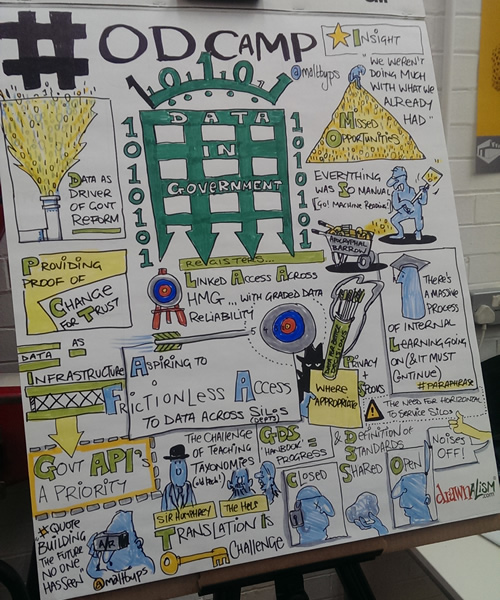 #ODCAMP
10101
@maltbyps
INSIGHT
"WE WEREN'T
DOING MUCH
WITH WHAT WE
ALREADY
HAD"
MISSED
OPPORTUNITIES
DATA
IN
GOVERNMENT
1010101
1010101
DATA AS
DRIVER
OF GOVT
REFORM
EVERYTHING
WAS SO MANUAL
(GO! MACHINE READABLE!)
APOCRYPHAL
BARROW
PROVIDING
PROOF OF
CHANGE
FOR TRUST
REGISTERS...
LINKED ACCESS ACROSS
HMG... WITH GRADED DATA
RELIABILITY
THERE'S
A MASSIVE
PROCESS
OF INTERNAL
LEARNING GOING
ON (& IT MUST
CONTINUE)
#PARAPHRASE
DATA AS
INFRASTRUCTURE
ASPIRING TO
FRICTIONLESS ACCESS
TO DATA ACROSS SILOS
(DEPTS)
PRIVACY
+
SPOOKS
WHERE
APPROPRIATE
THE NEED FOR HORIZONTAL
TO SERVICE SILOS
NOISES
OFF!
GOVT API'S
A PRIORITY
THE CHALLENGE
OF TEACHING
TAXONOMIES
SIR HUMPHREY
THE HELP
TRANSLATION IS
CHALLENGE
GDS =
'HANDBOOK'
PROGRESS
&
DEFINITION OF
STANDARDS
CLOSED
SHARED
OPEN
"#QUOTE
BUILDING
THE FUTURE
NO ONE
HAS SEEN"
@maltbyps
drawnalism
.com